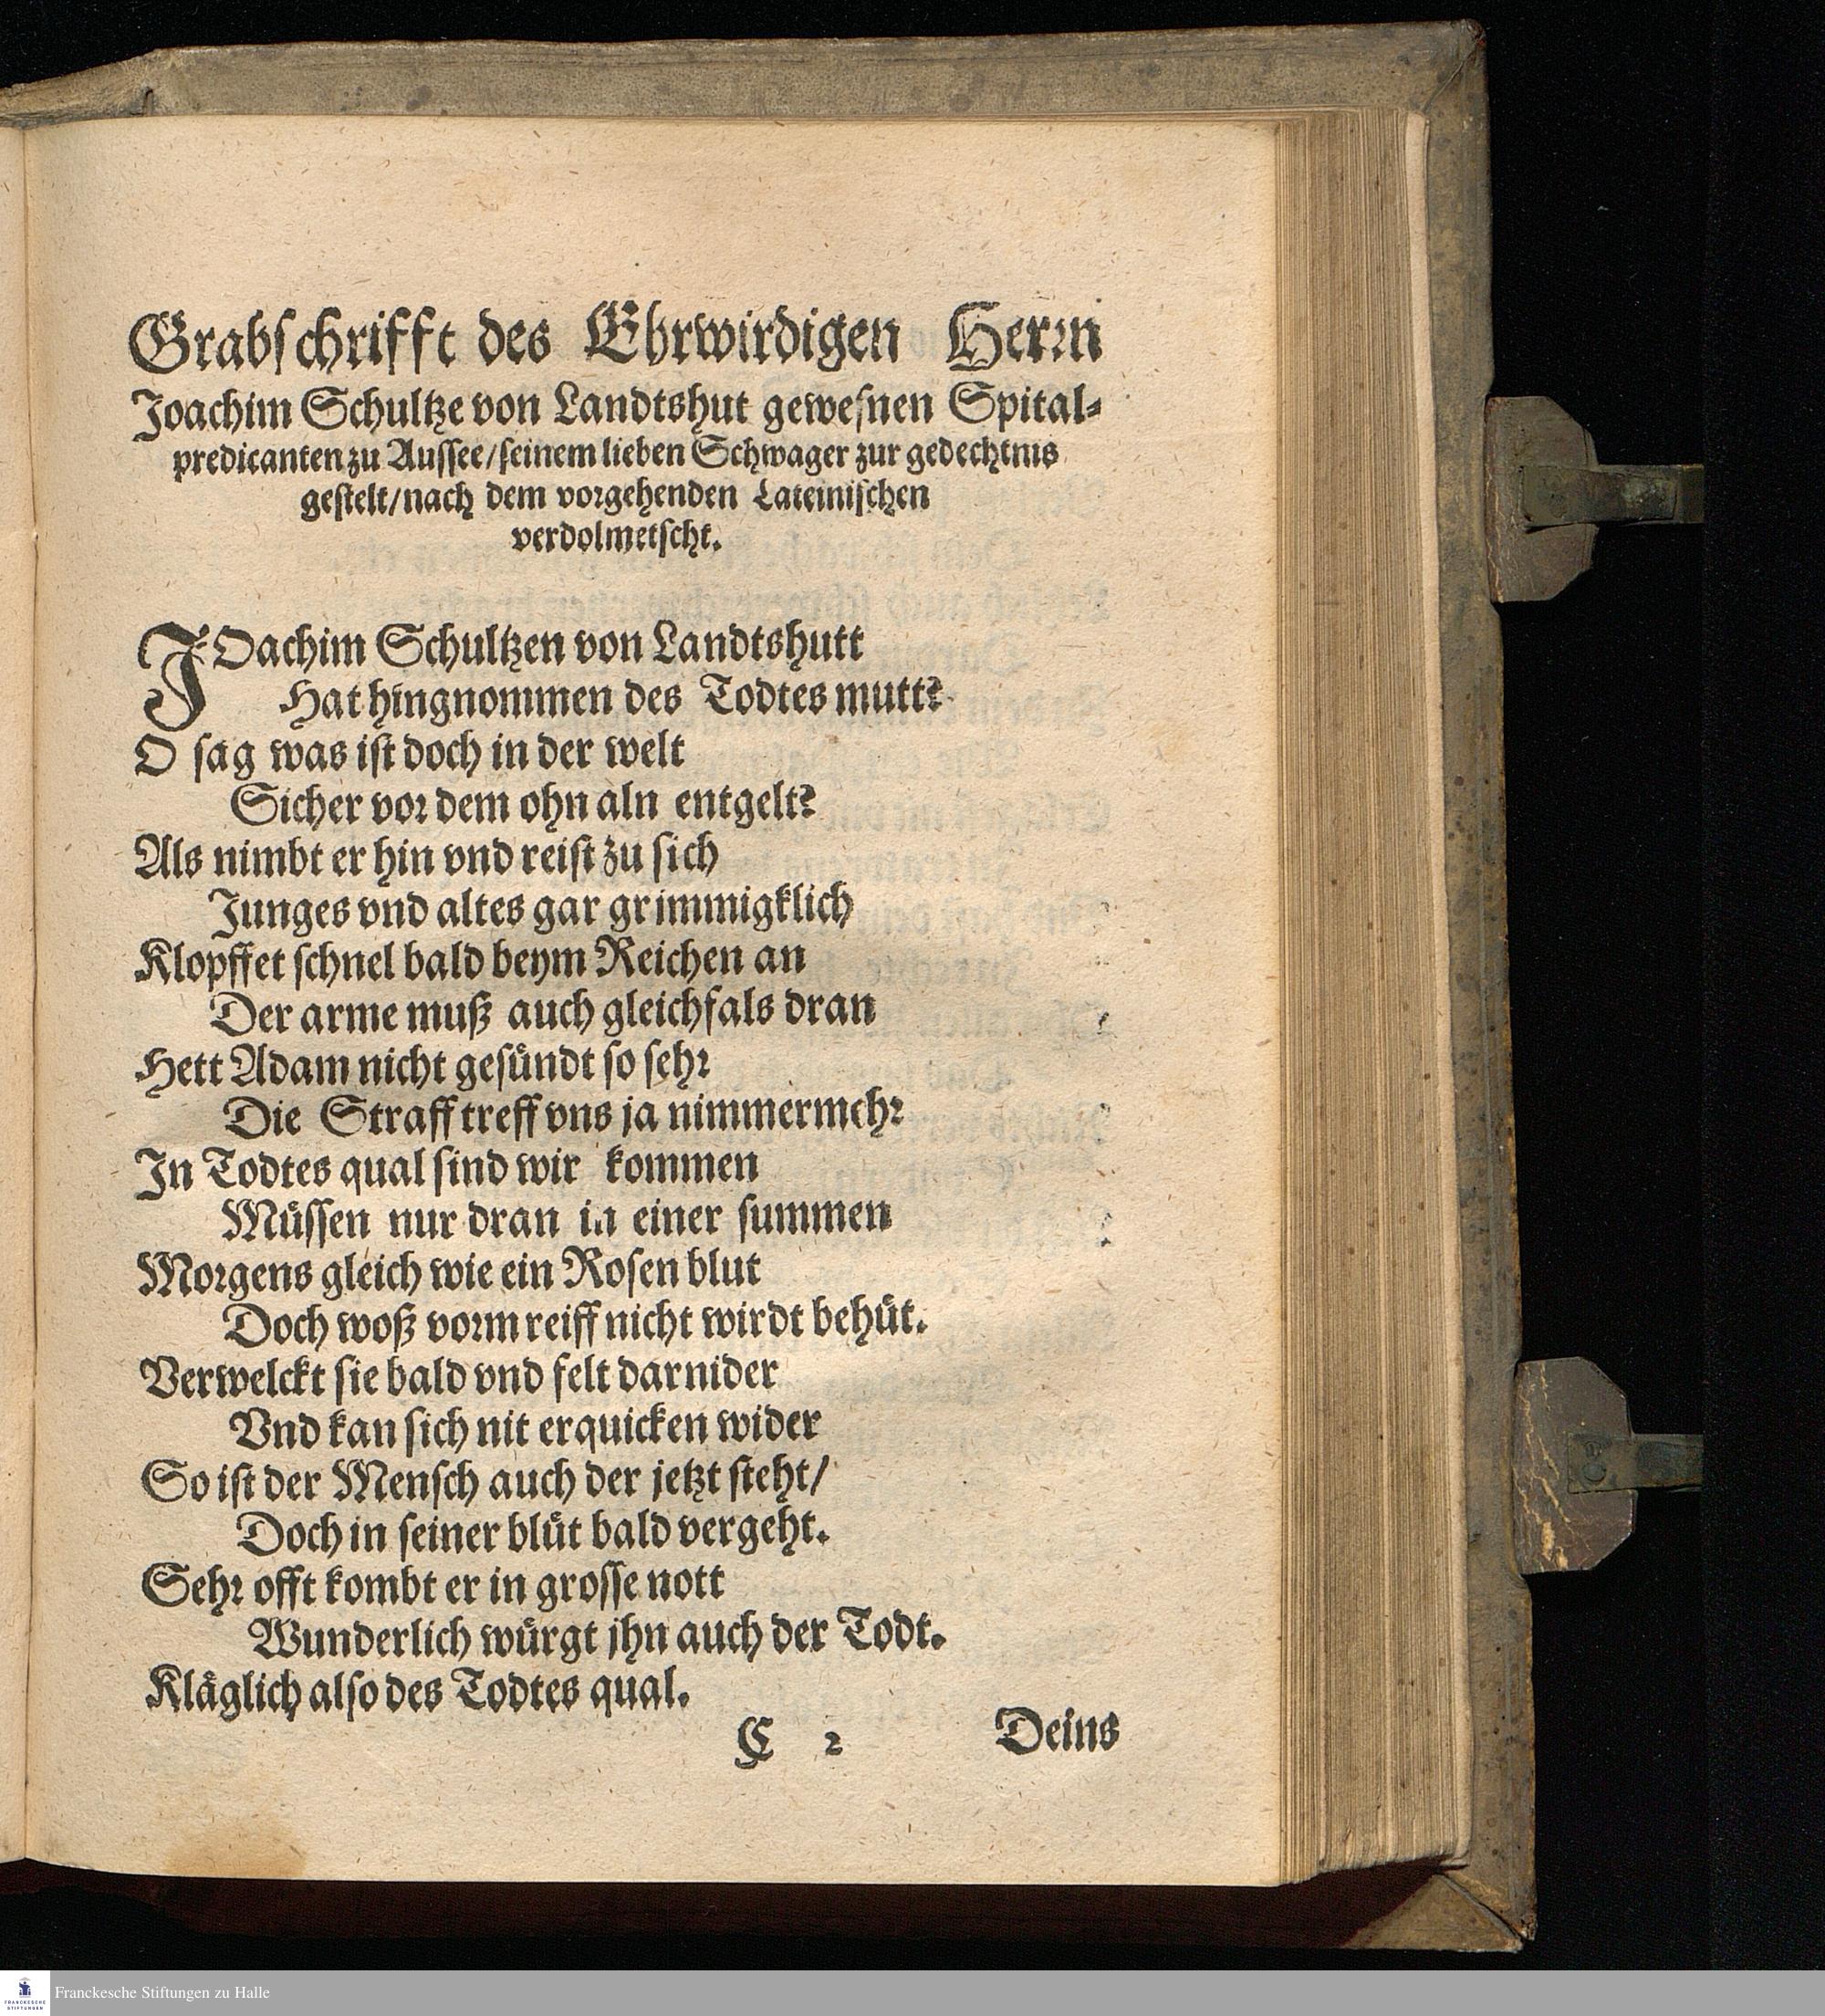 Grabſchrifft des Ehrwirdigen Herrn
Joachim Schultze von Landtshut geweſnen Spital⸗
predicanten zu Auſſee/ſeinem lieben Schwager zur gedechtnis
geſtelt/nach dem vorgehenden Lateiniſchen
verdolmetſcht.
JOachim Schultzen von Landtshutt
Hat hingnommen des Todtes mutt?
O ſag was iſt doch in der welt
Sicher vor dem ohn aln entgelt?
Als nimbt er hin vnd reiſt zu ſich
Junges vnd altes gar grimmigklich
Klopffet ſchnel bald beym Reichen an
Der arme muß auch gleichfals dran
Hett Adam nicht geſuͤndt ſo ſehr
Die Straff treff vns ja nimmermehr
In Todtes qual ſind wir kommen
Muͤſſen nur dran in einer ſummen
Morgens gleich wie ein Roſen blut
Doch woß vorm reiff nicht wirdt behuͤt.
Verwelckt ſie bald vnd felt darnider
Vnd kan ſich nit erquicken wider
So iſt der Menſch auch der jetzt ſteht/
Doch in ſeiner bluͤt bald vergeht.
Sehr offt kombt er in groſſe nott
Wunderlich wuͤrgt jhn auch der Todt.
Klaͤglich alſo des Todtes qual.
C 2 Deins
Franckesche Stiftungen zu Halle
FRANCKESCHE
STIFTUNGEN